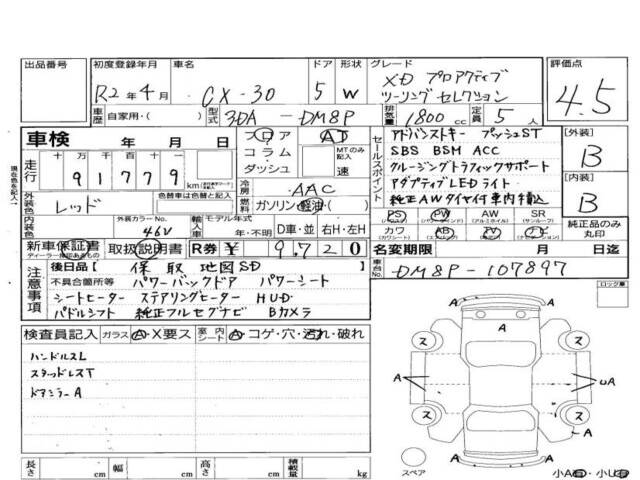 出品番号 初度登録年月 車名 ドア 形状 グレード 評価点
R2年4月 CX-30 5 W XD プロアクティブ
ツーリング セレクション
4.5
車歴 自家用・( ) 型式 3DA-DM8P 排気量 1800cc 定員 5人
車検 年 月 日
フロア AT
コラム・ MTのみ記入
ダッシュ 速
走行 十 万 千 百 十 一
91779 km
セールスポイント
アドバンストキー プッシュST
SBS BSM ACC
クルージングトラフィックサポート
アダプティブLEDライト
純正AWタイヤ付 車内積込
[外装]
B
[内装]
B
冷房 AAC
燃料 ガソリン・軽油・( )
外装色 レッド 色替車は色替と記入
内装色 外装カラーNo. 46V
輸入車 モデル年式 年・不明 D車・並 右H・左H
PS PW AW SR
(パワステ) (パワーウィンド) (アルミホイル) (サンルーフ)
カワ AB TV ナビ
純正品のみ丸印
新車保証書 取扱説明書 R券 ¥ 9,720
ディーラー印があるもの
名変期限 月 日迄
車台No. DM8P-107897
注意事項
後日品【 保 取 地図SD 】
不具合箇所等 パワーバックドア パワーシート
シートヒーター ステアリングヒーター HUD
パドルシフト 純正フルセグナビ Bカメラ
ロック車
検査員記入 ガラス A・X要ス 室内 シート A・コゲ・穴・汚れ・破れ
ハンドルスレ
スタッドレスT
ドアミラーA
A
A
A
A
UA
A
A
ス
ス
ス
ス
スペア
長さ cm 幅 cm 高さ cm 積載量 kg
小A 小U
現在色を記入